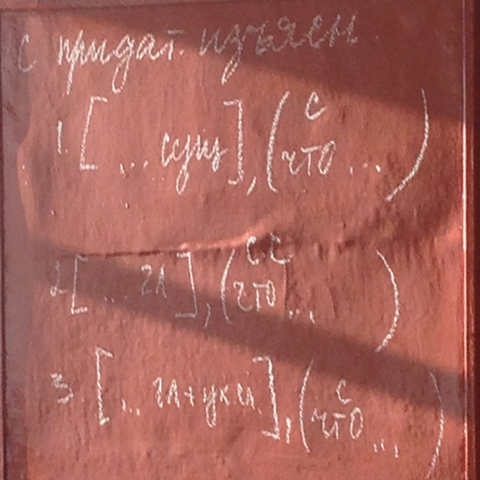 с придат. изъясн.
с
1. [... сущ], (что ...)
с.с
2. [... гл], (что ...)
с
3. [... гл+ук.сл.], (что ...)